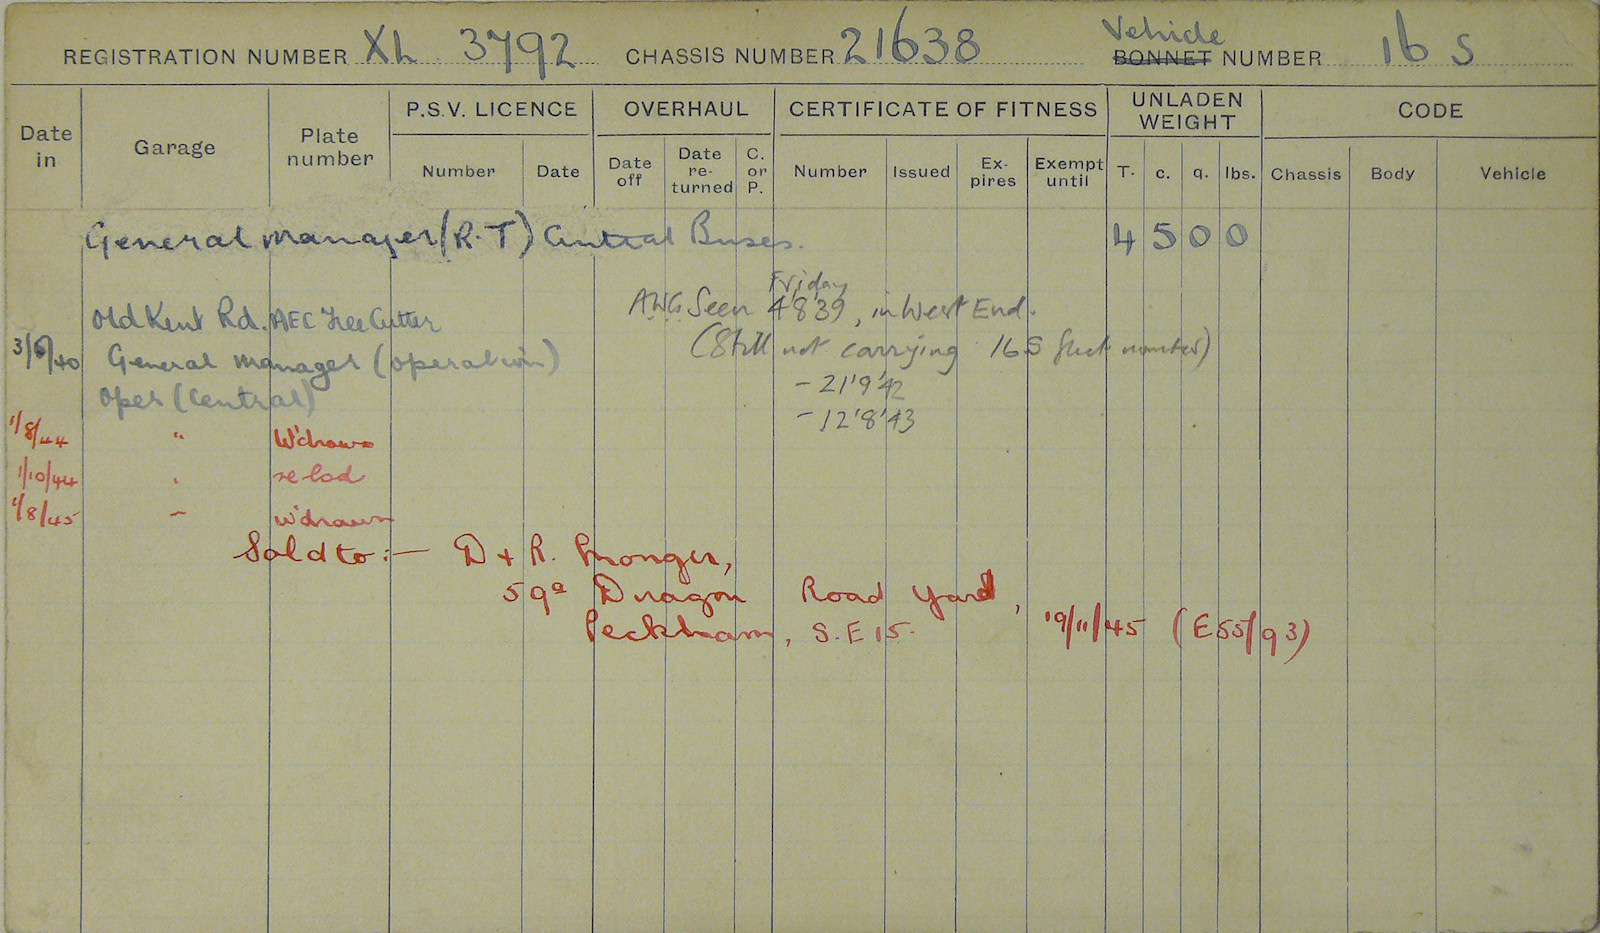 REGISTRATION NUMBER XL 3792 CHASSIS NUMBER 21638 Vehicle BONNET NUMBER 16 S
Date in Garage Plate number P.S.V. LICENCE OVERHAUL CERTIFICATE OF FITNESS UNLADEN WEIGHT CODE
Number Date Date off Date re-turned C. or P. Number Issued Ex-pires Exempt until T. c. q. lbs. Chassis Body Vehicle
General Manager (R.T) Central Buses. 4 5 0 0
Friday
Old Kent Rd. AEC Tree Cutter AWG Seen 4'8'39, in West End.
3/6/40 General Manager (operation) (Still not carrying 16S fleet number)
Oper (Central) - 21'9'42
- 12'8'43
1/8/44 " W'drawn
1/10/44 " re lod
1/8/45 " W'drawn
Sold to:- D + R. Pronger,
59a Dragon Road Yard,
Peckham, S.E 15. 19/11/45 (E55/93)